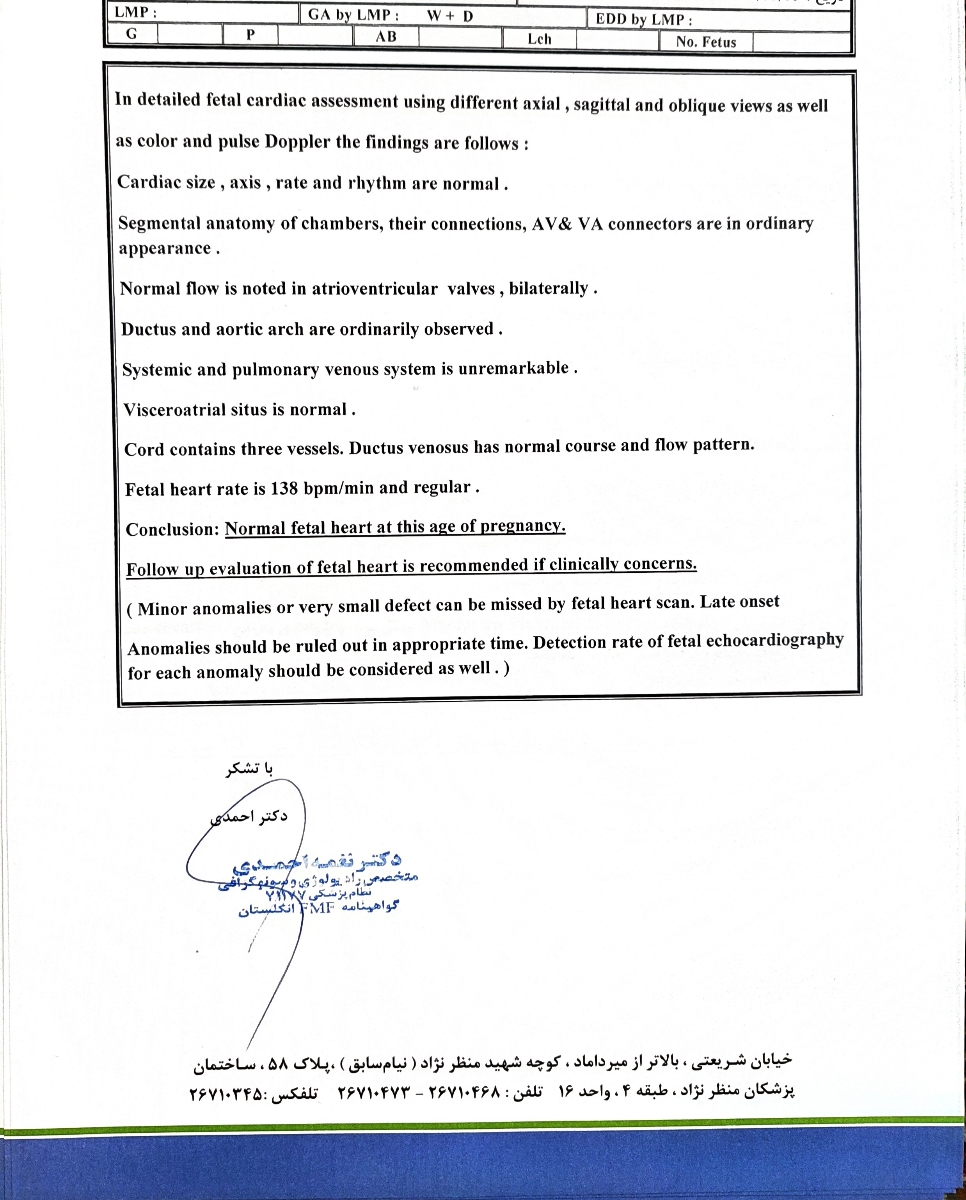 LMP : GA by LMP : W + D EDD by LMP :
G P AB Lch No. Fetus
In detailed fetal cardiac assessment using different axial , sagittal and oblique views as well
as color and pulse Doppler the findings are follows :
Cardiac size , axis , rate and rhythm are normal .
Segmental anatomy of chambers, their connections, AV& VA connectors are in ordinary
appearance .
Normal flow is noted in atrioventricular valves , bilaterally .
Ductus and aortic arch are ordinarily observed .
Systemic and pulmonary venous system is unremarkable .
Visceroatrial situs is normal .
Cord contains three vessels. Ductus venosus has normal course and flow pattern.
Fetal heart rate is 138 bpm/min and regular .
Conclusion: Normal fetal heart at this age of pregnancy.
Follow up evaluation of fetal heart is recommended if clinically concerns.
( Minor anomalies or very small defect can be missed by fetal heart scan. Late onset
Anomalies should be ruled out in appropriate time. Detection rate of fetal echocardiography
for each anomaly should be considered as well . )
با تشکر
دکتر احمدی
دکتر نغمه احمدی
متخصص رادیولوژی و سونوگرافی
نظام پزشکی
گواهینامه FMF انگلستان
خیابان شریعتی ، بالاتر از میرداماد ، کوچه شهید منظر نژاد ( نیام‌سابق ) ،پلاک ۵۸ ، ساختمان
پزشکان منظر نژاد ، طبقه ۴ ، واحد ۱۶ تلفن : ۲۶۷۱۰۴۶۸ - ۲۶۷۱۰۴۷۳ تلفکس :۲۶۷۱۰۳۴۵